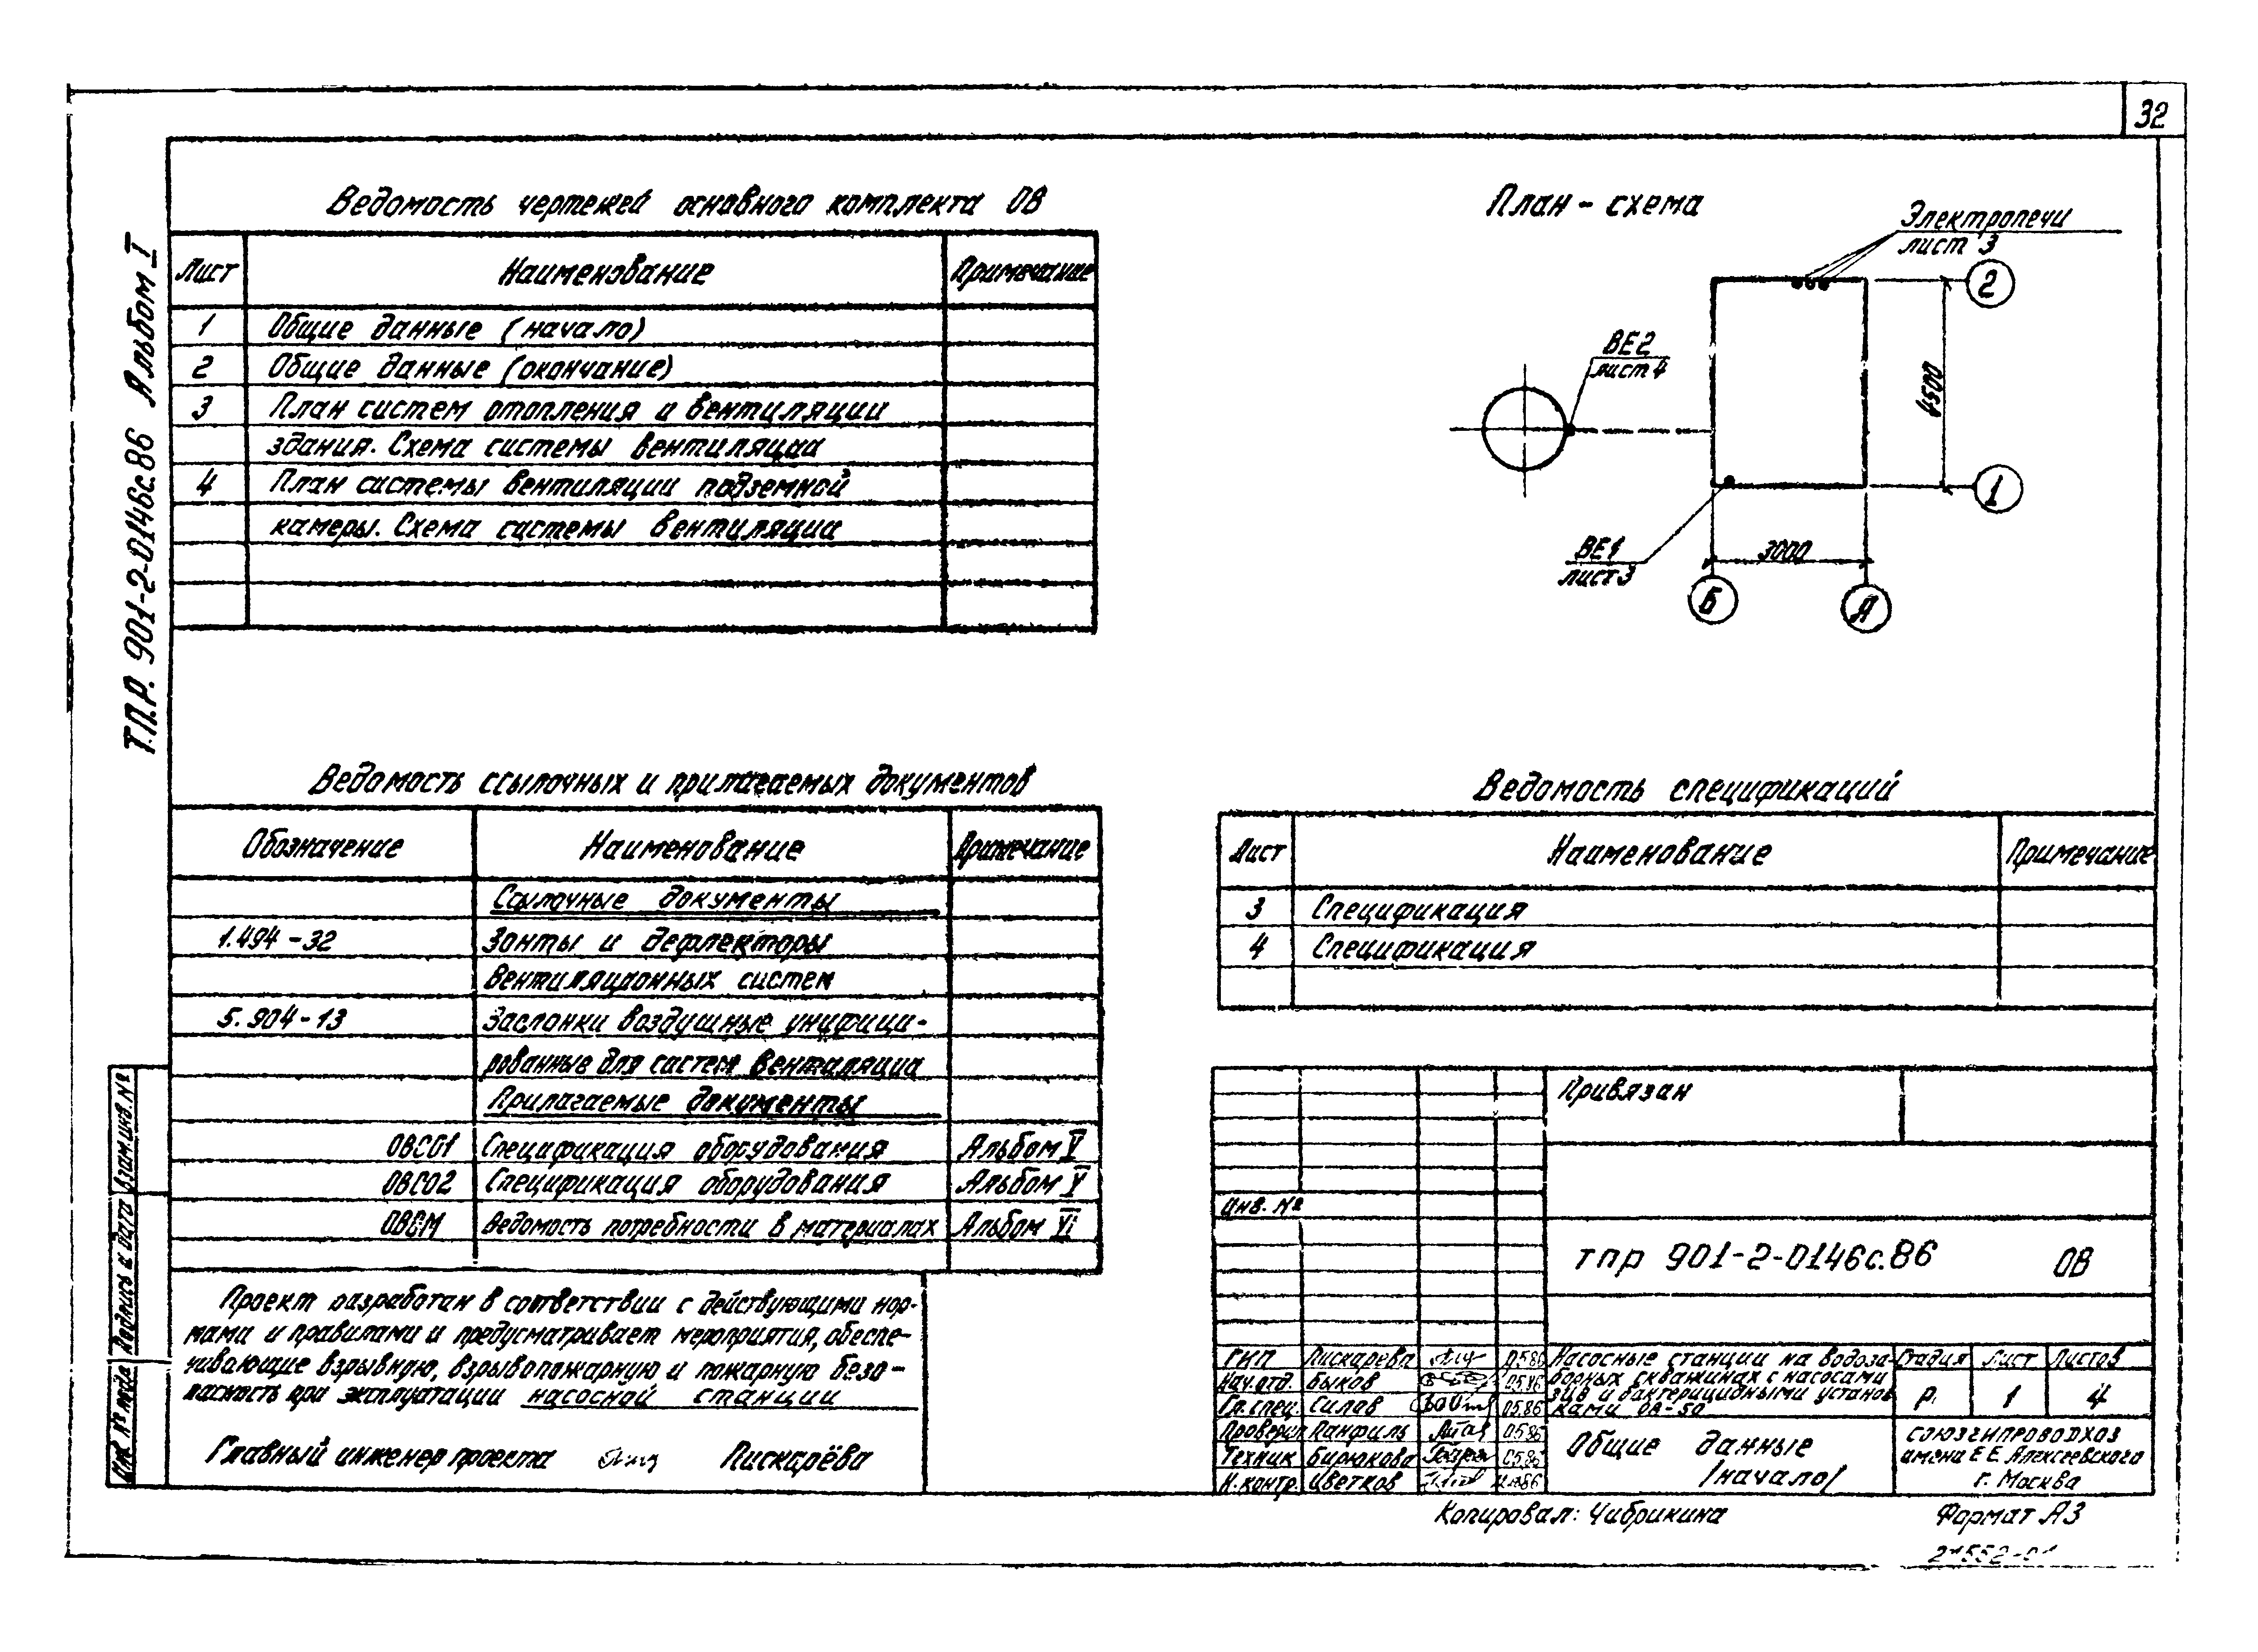 32
Т.П.Р. 901-2-0146с.86 Альбом I
Ведомость чертежей основного комплекта ОВ
Лист Наименование Примечание
1 Общие данные (начало)
2 Общие данные (окончание)
3 План систем отопления и вентиляции
здания. Схема системы вентиляции
4 План системы вентиляции подземной
камеры. Схема системы вентиляции
План-схема
Электропечи
лист 3
2
ВЕ2
лист 4
4500
1
ВЕ1
лист 3
3000
Б
А
Ведомость ссылочных и прилагаемых документов
Обозначение Наименование Примечание
Ссылочные документы
1.494-32 Зонты и дефлекторы
вентиляционных систем
5.904-13 Заслонки воздушные унифици-
рованные для систем вентиляции
Прилагаемые документы
ОВСО1 Спецификация оборудования Альбом V
ОВСО2 Спецификация оборудования Альбом V
ОВВМ Ведомость потребности в материалах Альбом VI
Ведомость спецификаций
Лист Наименование Примечание
3 Спецификация
4 Спецификация
Проект разработан в соответствии с действующими нор-
мами и правилами и предусматривает мероприятия, обеспе-
чивающие взрывную, взрывопожарную и пожарную безо-
пасность при эксплуатации насосной станции
Главный инженер проекта Пискарёва
Взам.инв.№
Подпись и дата
Инв. № подл
Привязан
Инв. №
тпр 901-2-0146с.86 ОВ
ГИП Пискарева 05.86
Нач.отд. Быков 05.86
Гл.спец. Силав 05.86
Проверил Панфиль 05.86
Техник Бирюкова 05.86
Н.контр. Цветков
Насосные станции на водоза-
борных скважинах с насосами
ЭЦВ и бактерицидными установ
ками ОВ-50
Стадия Лист Листов
Р. 1 4
Общие данные
/начало/
СОЮЗГИПРОВОДХОЗ
имена Е.Е. Алексеевского
г. Москва
Копировал: Чибрикина
Формат А3
21552-01